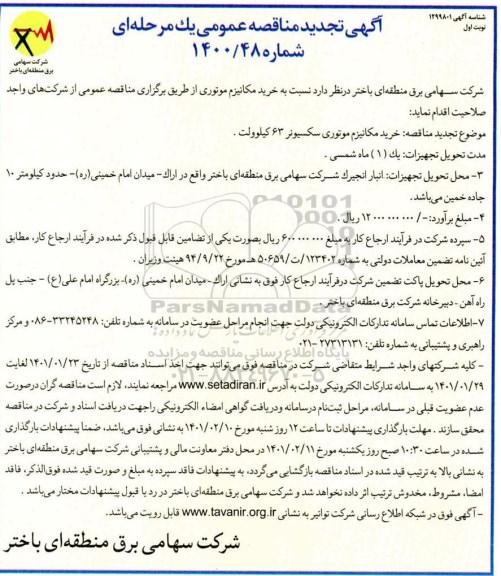 شناسه آگهی ۱۲۹۹۸۰۱
نوبت اول
آگهی تجدید مناقصه عمومی یك مرحله‌ای
شماره ۱۴۰۰/۴۸
شرکت سهامی
برق منطقه‌ای باختر
شرکت سهامی برق منطقه‌ای باختر درنظر دارد نسبت به خرید مکانیزم موتوری از طریق برگزاری مناقصه عمومی از شرکت‌های واجد
صلاحیت اقدام نماید:
موضوع تجدید مناقصه: خرید مکانیزم موتوری سکسیونر ۶۳ کیلوولت .
مدت تحویل تجهیزات: یك (۱) ماه شمسی .
۳- محل تحویل تجهیزات: انبار انجیرك شرکت سهامی برق منطقه‌ای باختر واقع در اراك- میدان امام خمینی(ره)- حدود کیلومتر ۱۰
جاده خمین می‌باشد.
۴- مبلغ برآورد: -/۱۲۰۰۰۰۰۰۰۰۰ ریال .
۵- سپرده شرکت در فرآیند ارجاع کار به مبلغ ۶۰۰۰۰۰۰۰۰ ریال بصورت یکی از تضامین قابل قبول ذکر شده در فرآیند ارجاع کار، مطابق
آئین نامه تضمین معاملات دولتی به شماره ۱۲۳۴۰۲/ت۵۰۶۵۹ هـ مورخ ۹۴/۹/۲۲ هیئت وزیران .
۶- محل تحویل پاکت تضمین شرکت درفرآیند ارجاع کار فوق به نشانی اراك - میدان امام خمینی (ره)- بزرگراه امام علی(ع) - جنب پل
راه آهن - دبیرخانه شرکت برق منطقه‌ای باختر .
۷-اطلاعات تماس سامانه تدارکات الکترونیکی دولت جهت انجام مراحل عضویت در سامانه به شماره تلفن: ۳۳۲۴۵۲۴۸-۰۸۶ و مرکز
راهبری و پشتیبانی به شماره تلفن: ۲۷۳۱۳۱۳۱ -۰۲۱
- کلیه شرکتهای واجد شرایط متقاضی شرکت در مناقصه فوق می‌توانند جهت اخذ اسناد مناقصه از تاریخ ۱۴۰۱/۰۱/۲۳ لغایت
۱۴۰۱/۰۱/۲۹ به سامانه تدارکات الکترونیکی دولت به آدرس www.setadiran.ir مراجعه نمایند، لازم است مناقصه گران درصورت
عدم عضویت قبلی در سامانه، مراحل ثبت‌نام درسامانه ودریافت گواهی امضاء الکترونیکی راجهت دریافت اسناد و شرکت در مناقصه
محقق سازند . مهلت بارگذاری پیشنهادات تا ساعت ۱۲ روز شنبه مورخ ۱۴۰۱/۰۲/۱۰ به نشانی فوق می‌باشد، ضمنا پیشنهادات بارگذاری
شده در ساعت ۱۰:۳۰ صبح روز یکشنبه مورخ ۱۴۰۱/۰۲/۱۱ در محل دفتر معاونت مالی و پشتیبانی شرکت سهامی برق منطقه‌ای باختر
به نشانی بالا به ترتیب قید شده در اسناد مناقصه بازگشایی می‌گردد، به پیشنهادات فاقد سپرده به مبلغ و صورت قید شده فوق‌الذکر، فاقد
امضا، مشروط، مخدوش ترتیب اثر داده نخواهد شد و شرکت سهامی برق منطقه‌ای باختر در رد یا قبول پیشنهادات مختار می‌باشد .
- آگهی فوق در شبکه اطلاع رسانی شرکت توانیر به نشانی www.tavanir.org.ir قابل رویت می‌باشد.
شرکت سهامی برق منطقه‌ای باختر